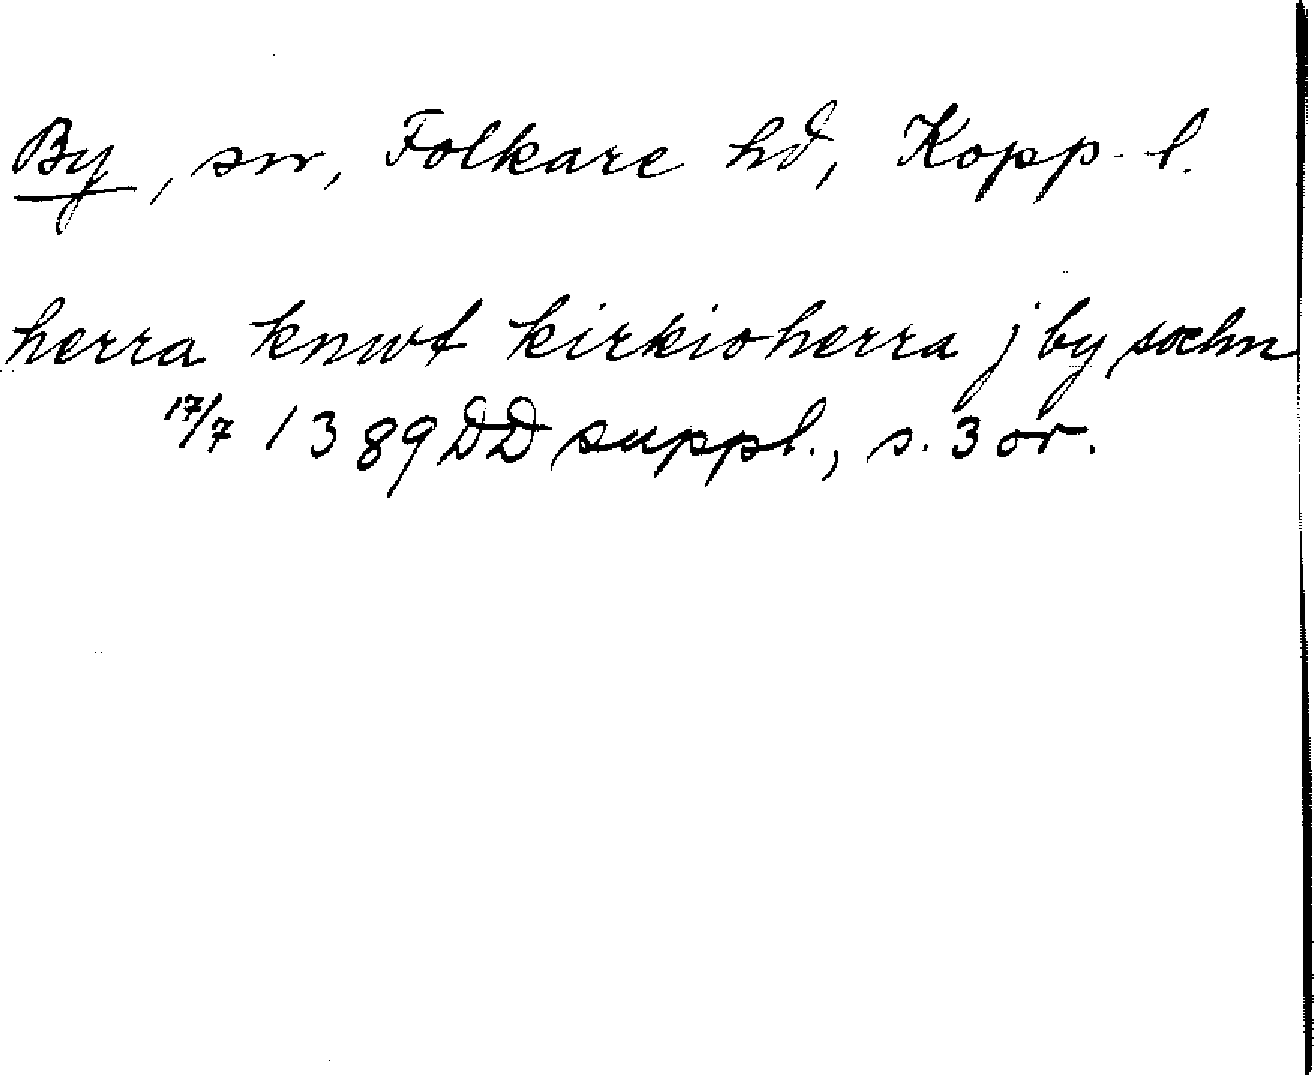 By, sn, Folkare hd, Kopp. l.
herra knwt kirkioherra j by sochn
17/7 1389 DD suppl., s. 3 or.